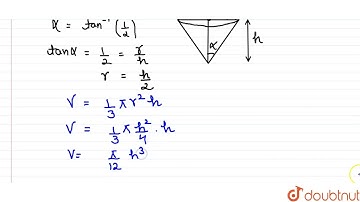 α = tan⁻¹ (1/2)
tanα = 1/2 = r/h
r = h/2
V = 1/3 π r² h
V = 1/3 π h²/4 · h
V= π/12 h³
α
h
doubtnut